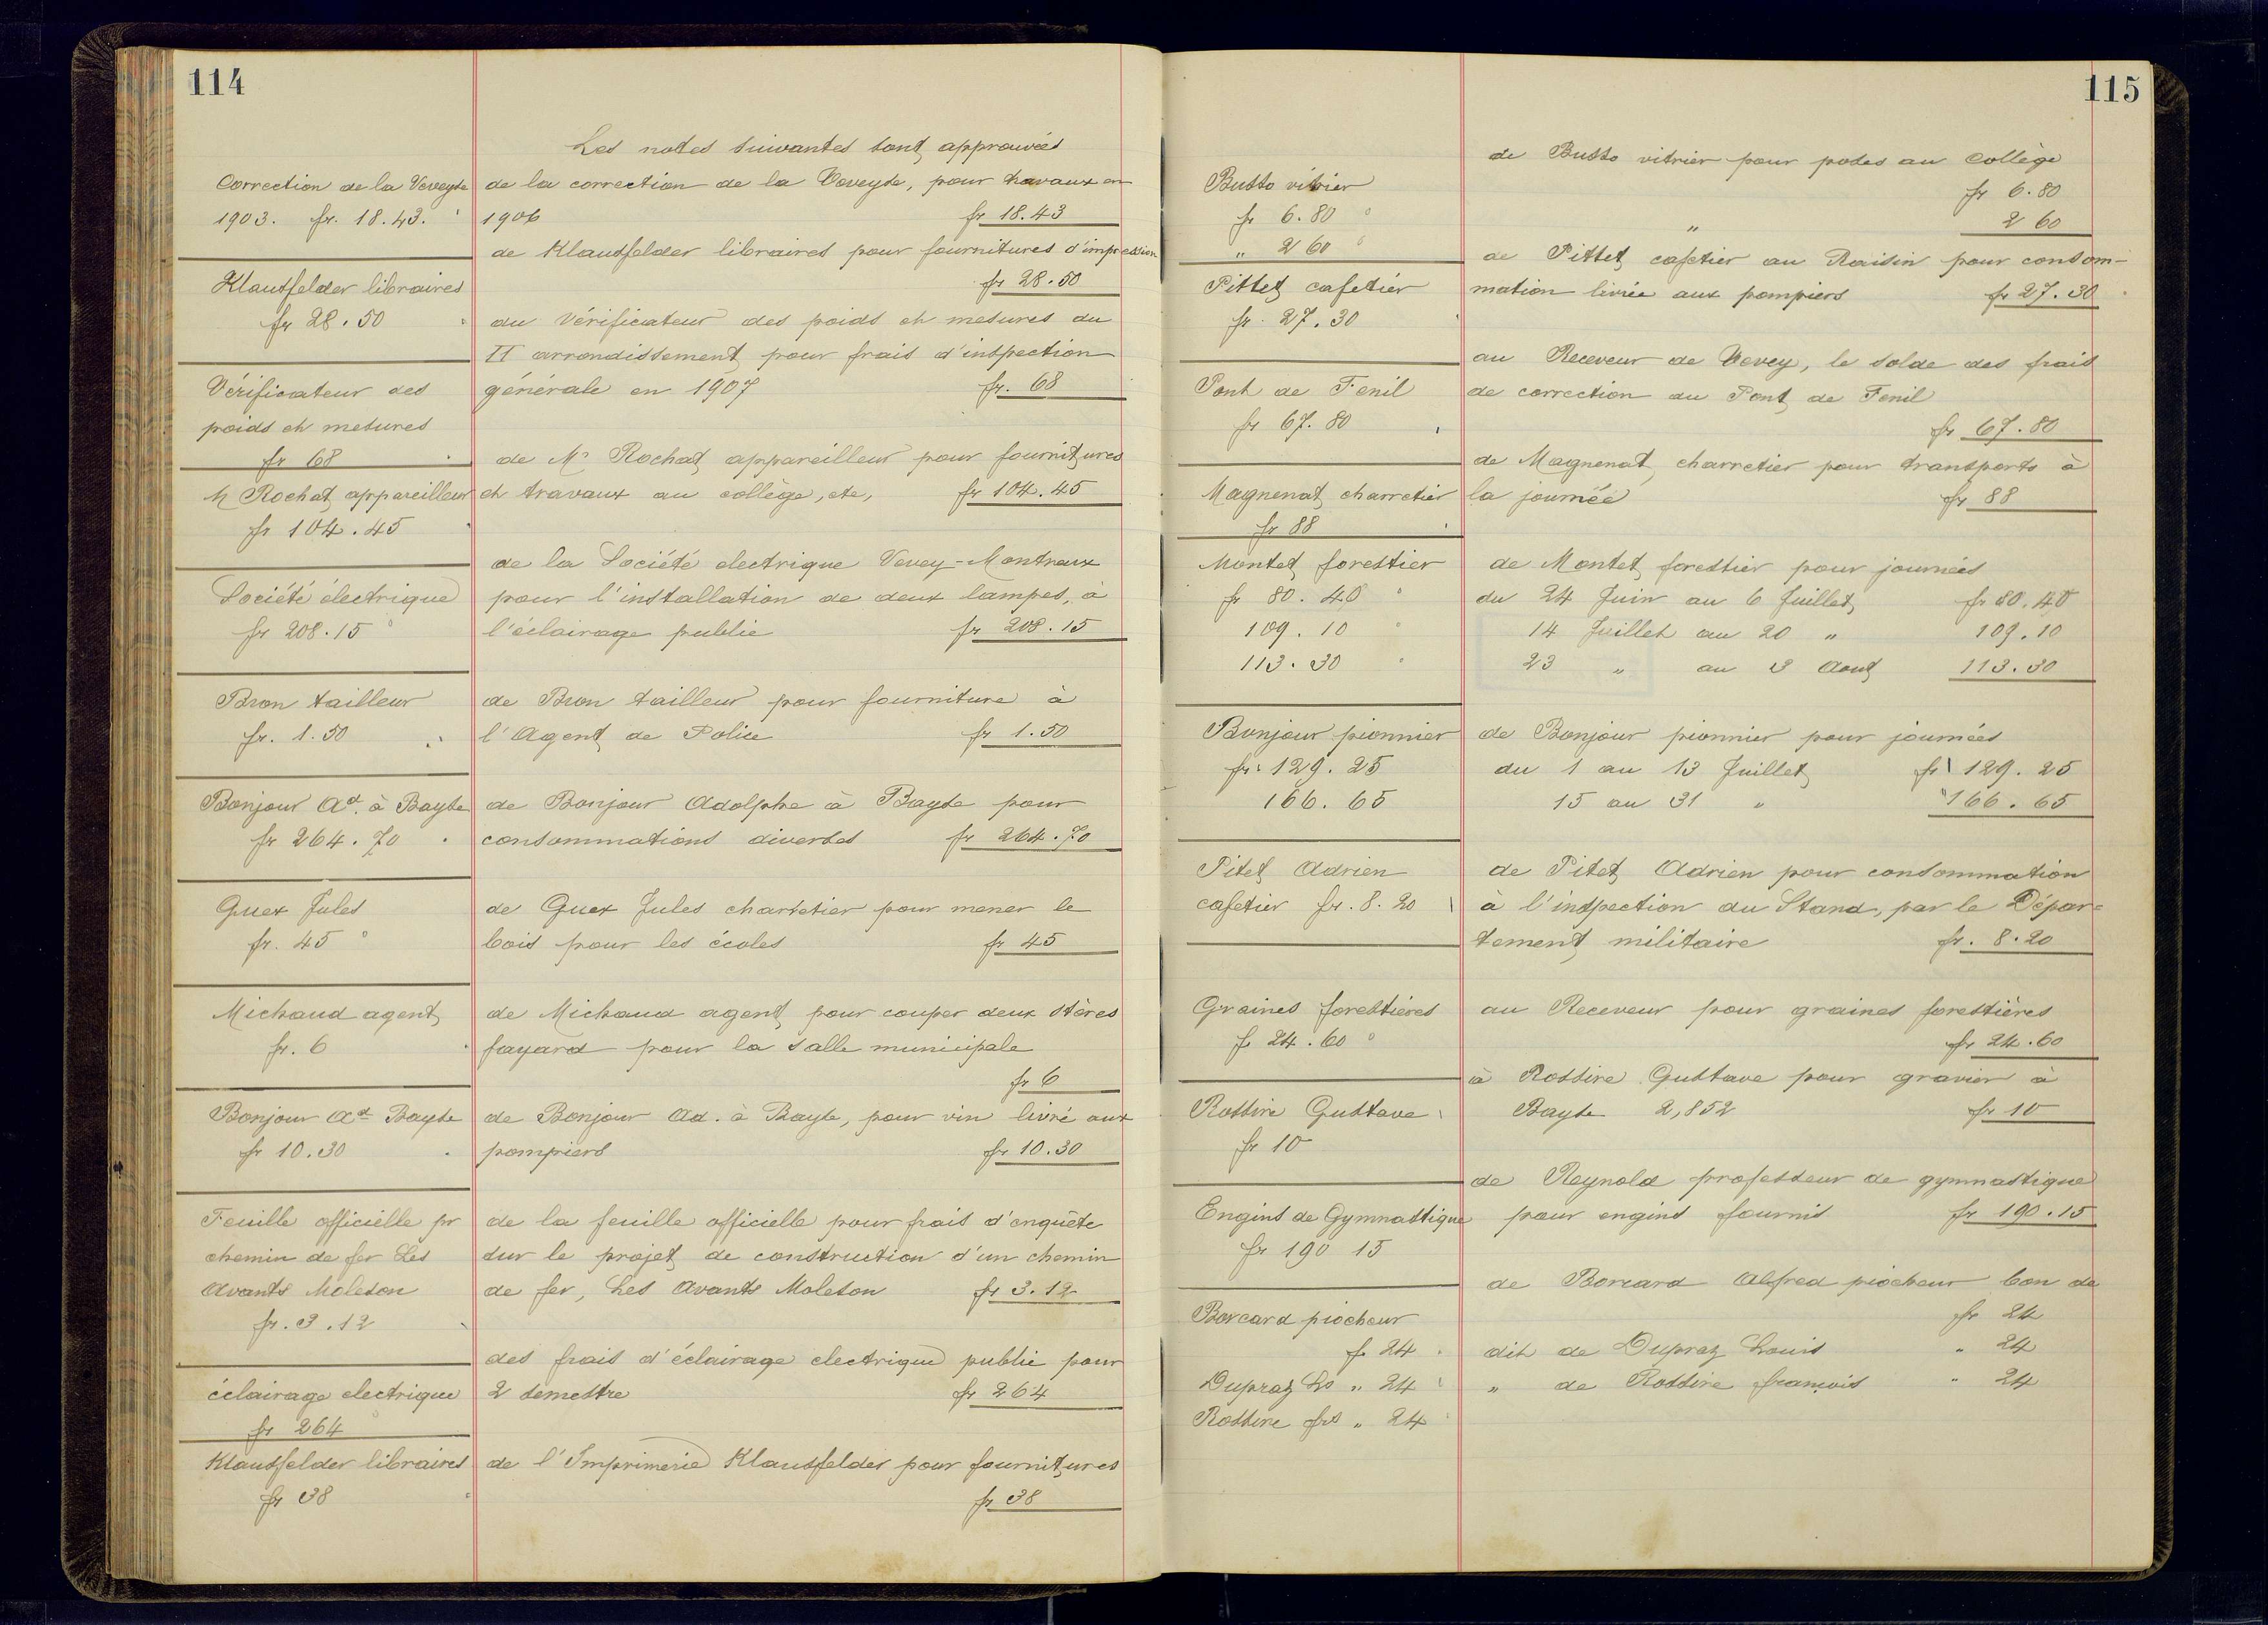 114
Les notes suivantes sont approuvées
Correction de la Veveyse
1903. fr. 18.43.
de la correction de la Veveyse, pour travaux en
1906 fr 18.43
de Klausfelder libraires pour fournitures d'impression
fr 28.50
Klausfelder libraires
fr 28.50
du Vérificateur des poids et mesures du
II arrondissement pour frais d'inspection
générale en 1907 fr. 68
Vérificateur des
poids et mesures
fr 68
de Mr Rochat appareilleur pour fournitures
et travaux au collège, etc, fr 104.45
M Rochat appareilleur
fr 104.45
de la Société electrique Vevey-Montreux
pour l'installation de deux lampes, à
l'éclairage public fr 208.15
Société électrique
fr 208.15
Bron tailleur
fr. 1.50
de Bron tailleur pour fourniture à
l'Agent de Police fr 1.50
Bonjour Ad. à Bayse
fr 264.70
de Bonjour Adolphe à Bayse pour
consommations diverses fr 264.70
Guex Jules
fr. 45
de Guex Jules charretier pour mener le
bois pour les écoles fr 45
Michaud agent
fr. 6
de Michaud agent pour couper deux stères
fayard pour la salle municipale
fr 6
Bonjour Ad Bayse
fr 10.30
de Bonjour Ad. à Bayse, pour vin livré aux
pompiers fr 10.30
Feuille officielle pr
chemin de fer Les
Avants Moleson
fr. 3.12
de la feuille officielle pour frais d'enquête
sur le projet de construction d'un chemin
de fer, Les Avants Moleson fr 3.12
des frais d'éclairage electrique public pour
2 semestre fr 264
éclairage electrique
fr 264
Klausfelder libraires
fr 38
de l'Imprimerie Klausfelder pour fournitures
fr 38
115
de Busso vitrier pour poses au Collège
fr 6.80
" 2 60
Busso vitrier
fr 6.80
" 2 60
de Pittet cafetier au Raisin pour consom-
mation livrée aux pompiers fr 27.30
Pittet cafetier
fr. 27.30
au Receveur de Vevey, le solde des frais
de correction du Pont de Fenil
fr 67.80
Pont de Fenil
fr 67.80
de Magnenat, charretier pour transports à
la journée fr 88
Magnenat charretier
fr 88
Montet forestier
fr 80.40
109.10
113.30
de Montet forestier pour journées
du 24 Juin au 6 Juillet fr 80.40
14 Juillet au 20 " 109.10
23 " au 3 Aout 113.30
Bonjour pionnier
fr. 129.25
166.65
de Bonjour pionnier pour journées
du 1 au 13 Juillet fr 129.25
15 au 31 " " 166.65
Pitet Adrien
cafetier fr. 8.20
de Pitet Adrien pour consommation
à l'inspection du Stand par le Dépar=
tement militaire fr. 8.20
Graines forestières
f 24.60
au Receveur pour graines forestières
fr 24.60
à Rossire Gustave pour gravier à
Bayse 2,852 fr 10
Rossire Gustave
fr 10
de Reynold professeur de gymnastique
pour engins fournis fr 190.15
Engins de Gymnastique
fr 190 15
de Borcard Alfred piocheur bon de
fr 24
dit de Dupraz Louis " 24
" de Rossire françois " 24
Borcard piocheur
f 24
Dupraz Ls " 24
Rossire frs " 24